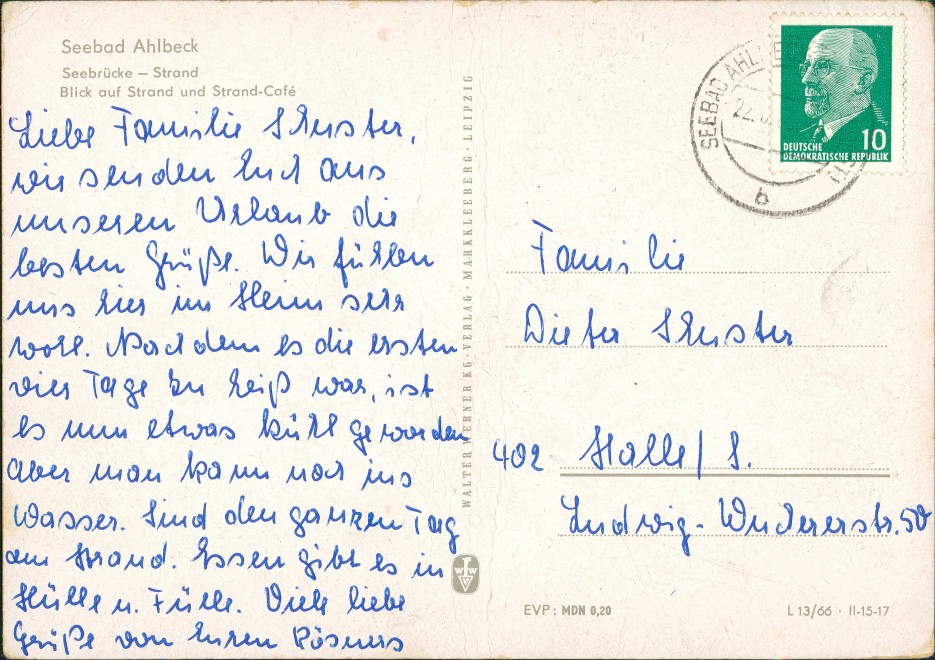 Seebad Ahlbeck
Seebrücke – Strand
Blick auf Strand und Strand-Café
Liebe Familie Schuster,
wir senden Euch aus
unseren Urlaub die
besten Grüße. Wir fühlen
uns hier im Heim sehr
wohl. Nachdem es die ersten
vier Tage zu heiß war, ist
es nun etwas kühl geworden
aber man kann noch ins
Wasser. Sind den ganzen Tag
am Strand. Essen gibt es in
Hülle u. Fülle. Viele liebe
Grüße von Euren Rösners
WALTER WERNER KG · VERLAG · MARKKLEEBERG · LEIPZIG
WVW
SEEBAD AHLBECK
22.
b
10
DEUTSCHE
DEMOKRATISCHE REPUBLIK
Familie
Dieter Schuster
402 Halle / S.
Ludwig-Wuchererstr. 50
EVP: MDN 0,20
L 13/66 · II-15-17